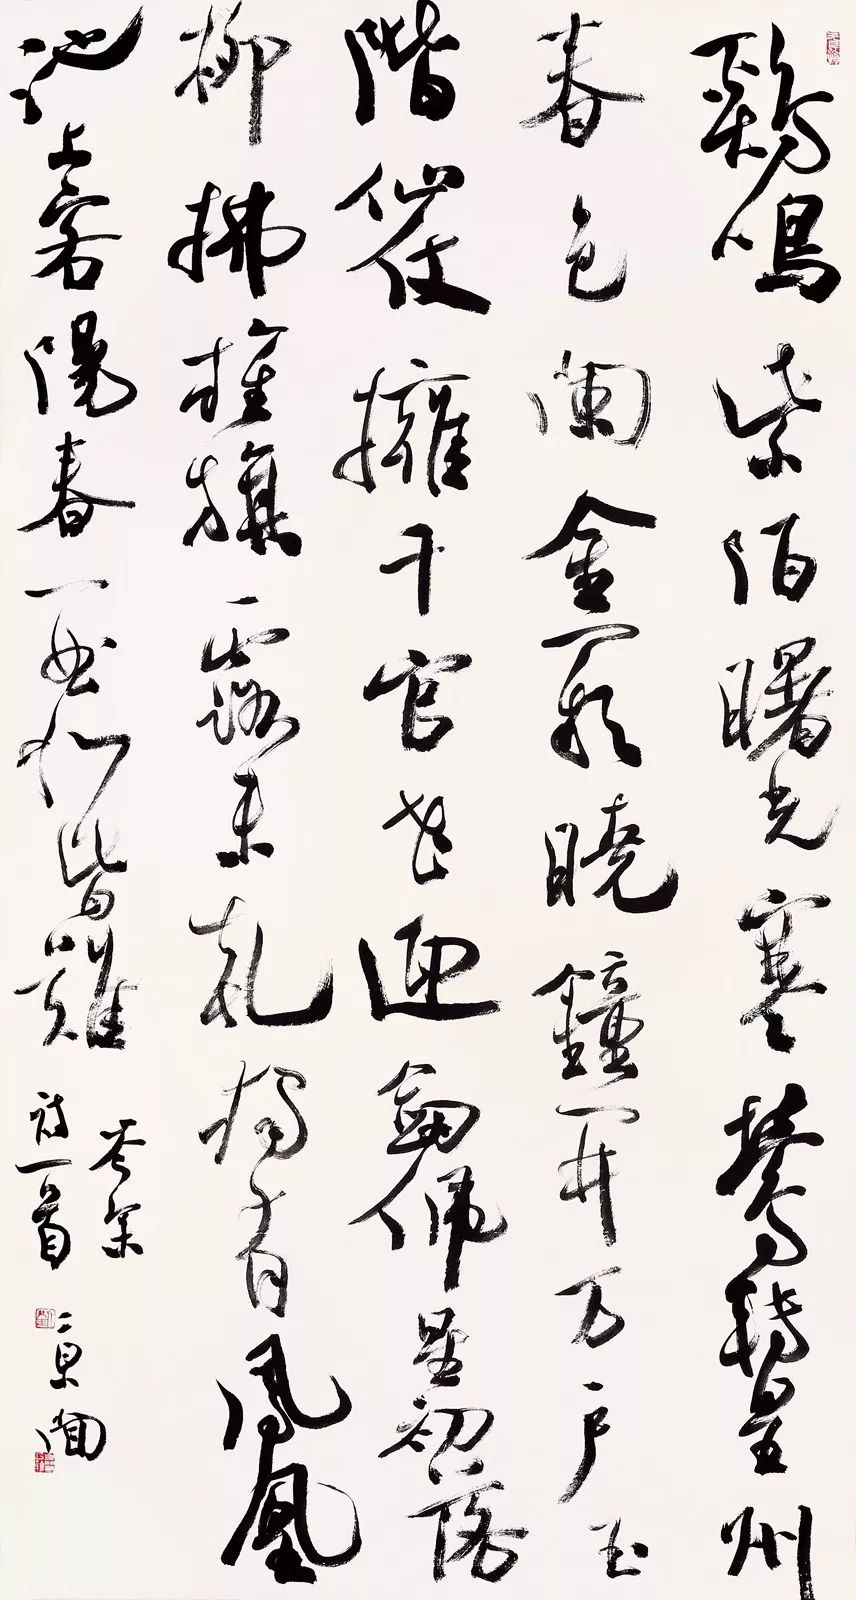 鷄鳴紫陌曙光寒鶯囀皇州
春色闌金闕曉鐘開万户玉
階僊仗擁千官花迎劍佩星初落
柳拂旌旗露未乾獨有鳳凰
池上客陽春一曲和皆難
岑參
詩一首